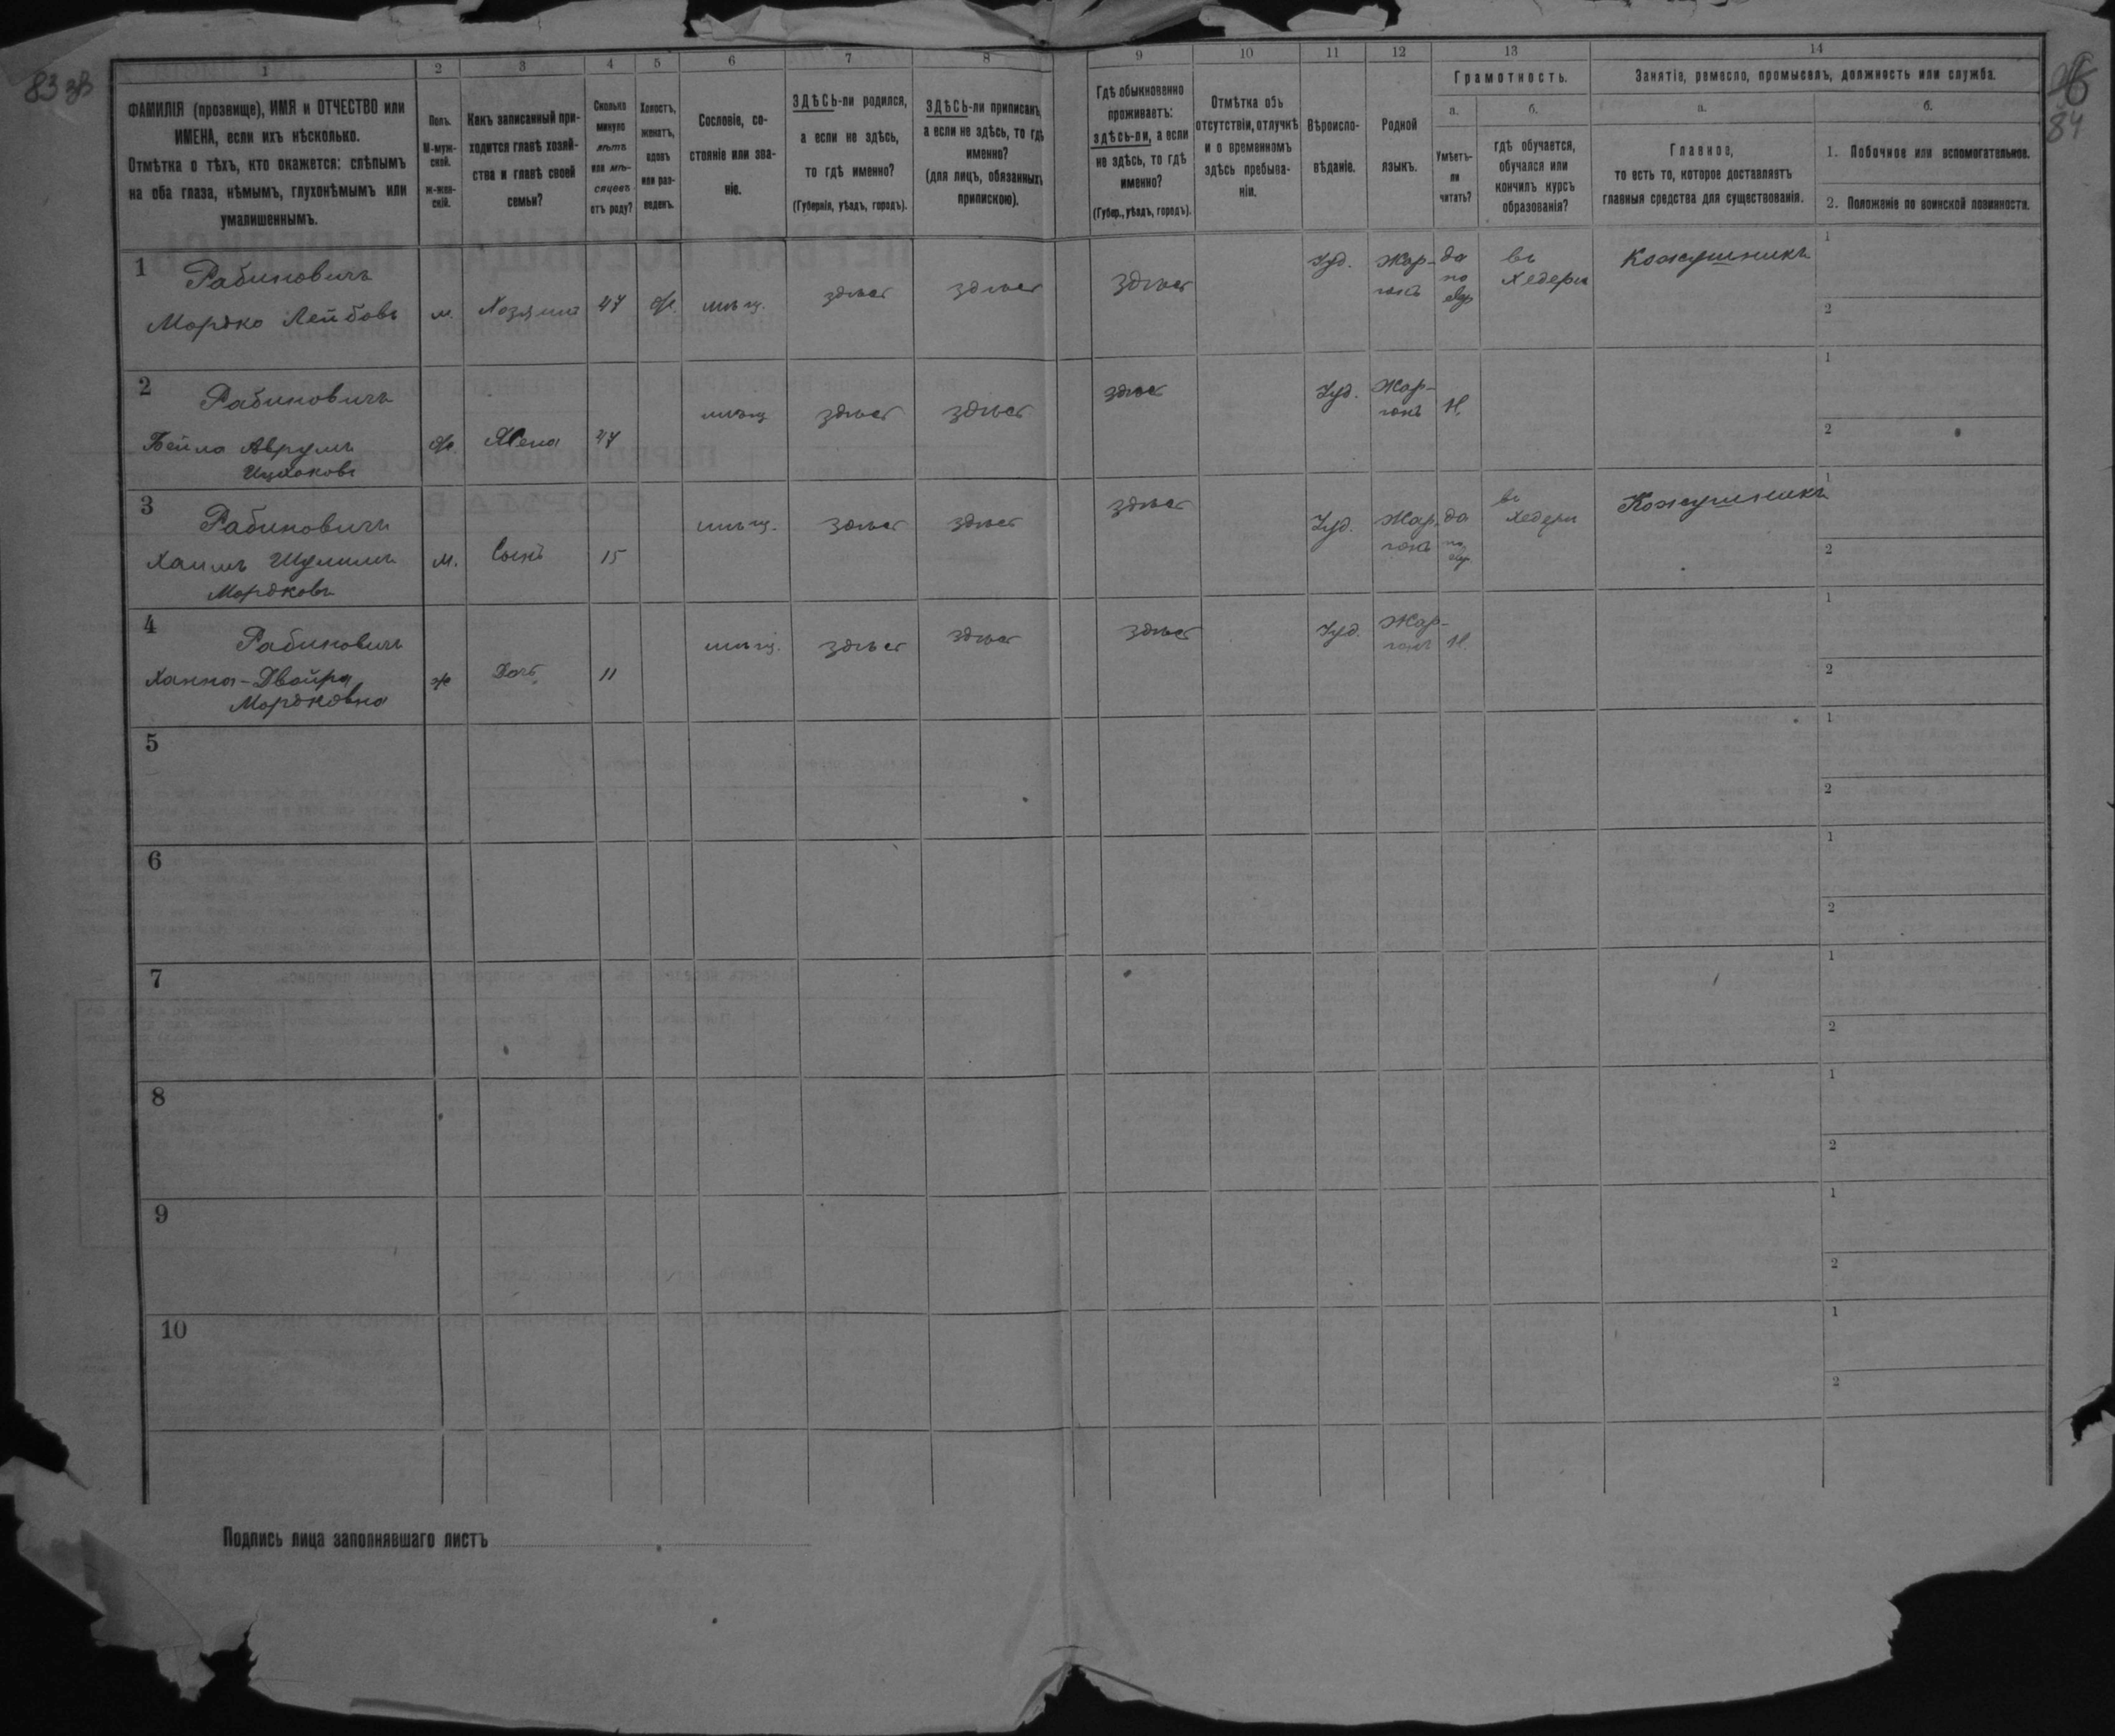 83 зв
84
1
2
3
4
5
6
7
8
9
10
11
12
13
14
ФАМИЛІЯ (прозвище), ИМЯ и ОТЧЕСТВО или
ИМЕНА, если ихъ нѣсколько.
Отмѣтка о тѣхъ, кто окажется: слѣпымъ
на оба глаза, нѣмымъ, глухонѣмымъ или
умалишеннымъ.
Полъ.
М-муж-
ской.
Ж-жен-
скій.
Какъ записанный при-
ходится главѣ хозяй-
ства и главѣ своей
семьи?
Сколько
минуло
лѣтъ
или мѣ-
сяцевъ
отъ роду?
Холостъ,
женатъ,
вдовъ
или раз-
веденъ.
Сословіе, со-
стояніе или зва-
ніе.
ЗДѢСЬ-ли родился,
а если не здѣсь,
то гдѣ именно?
(Губернія, уѣздъ, городъ).
ЗДѢСЬ-ли приписанъ,
а если не здѣсь, то гдѣ
именно?
(для лицъ, обязанныхъ
припискою).
Гдѣ обыкновенно
проживаетъ:
здѣсь-ли, а если
не здѣсь, то гдѣ
именно?
(Губер., уѣздъ, городъ).
Отмѣтка объ
отсутствіи, отлучкѣ
и о временномъ
здѣсь пребыва-
ніи.
Вѣроиспо-
вѣданіе.
Родной
языкъ.
Грамотность.
а.
Умѣетъ-
ли
читать?
б.
гдѣ обучается,
обучался или
кончилъ курсъ
образованія?
Занятіе, ремесло, промыселъ, должность или служба.
а.
Главное,
то есть то, которое доставляетъ
главныя средства для существованія.
б.
1. Побочное или вспомогательное.
2. Положеніе по воинской повинности.
1
Рабиновичъ
Мордко Лейбовъ
м.
Хозяинъ
47
ж.
мѣщ.
здѣсь
здѣсь
здѣсь
Іуд.
Жар-
гонъ
да
по
евр
въ
Хедерѣ
Кожушникъ
1
2
2
Рабиновичъ
Бейла Аврумъ
Ицхокова
ж.
Жена
47
мѣщ
здѣсь
здѣсь
здѣсь
Іуд.
Жар-
гонъ
Н.
1
2
3
Рабиновичъ
Хаимъ Шулимъ
Мордковъ
м.
Сынъ
15
мѣщ.
здѣсь
здѣсь
здѣсь
Іуд.
Жар.
гонъ
да
по
евр
въ
Хедерѣ
Кожушникъ
1
2
4
Рабиновичъ
Ханна-Двойра
Мордковна
ж
Дочь
11
мѣщ.
здѣсь
здѣсь
здѣсь
Іуд.
Жар-
гонъ
Н.
1
2
5
1
2
6
1
2
7
1
2
8
1
2
9
1
2
10
1
2
Подпись лица заполнявшаго листъ